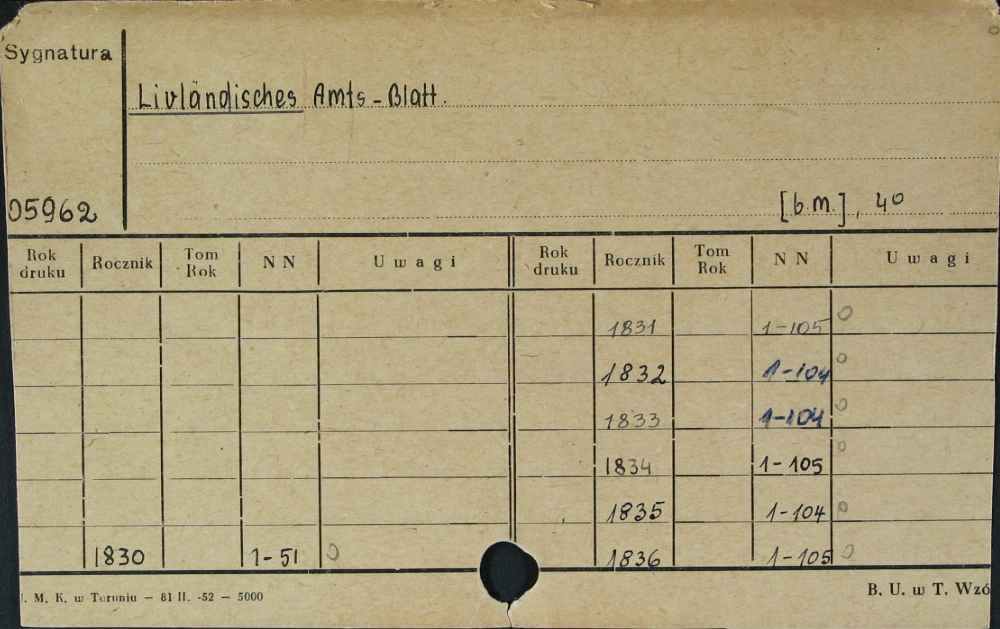 Sygnatura
Livländisches Amts-Blatt.
05962
[b.m.], 4⁰
Rok druku Rocznik Tom Rok NN Uwagi Rok druku Rocznik Tom Rok NN Uwagi
1831 1-105 0
1832 1-104 0
1833 1-104 0
1834 1-105 0
1835 1-104 0
1830 1-51 0 1836 1-105 0
. M. K. w Toruniu — 81 II. -52 — 5000
B. U. w T. Wzó